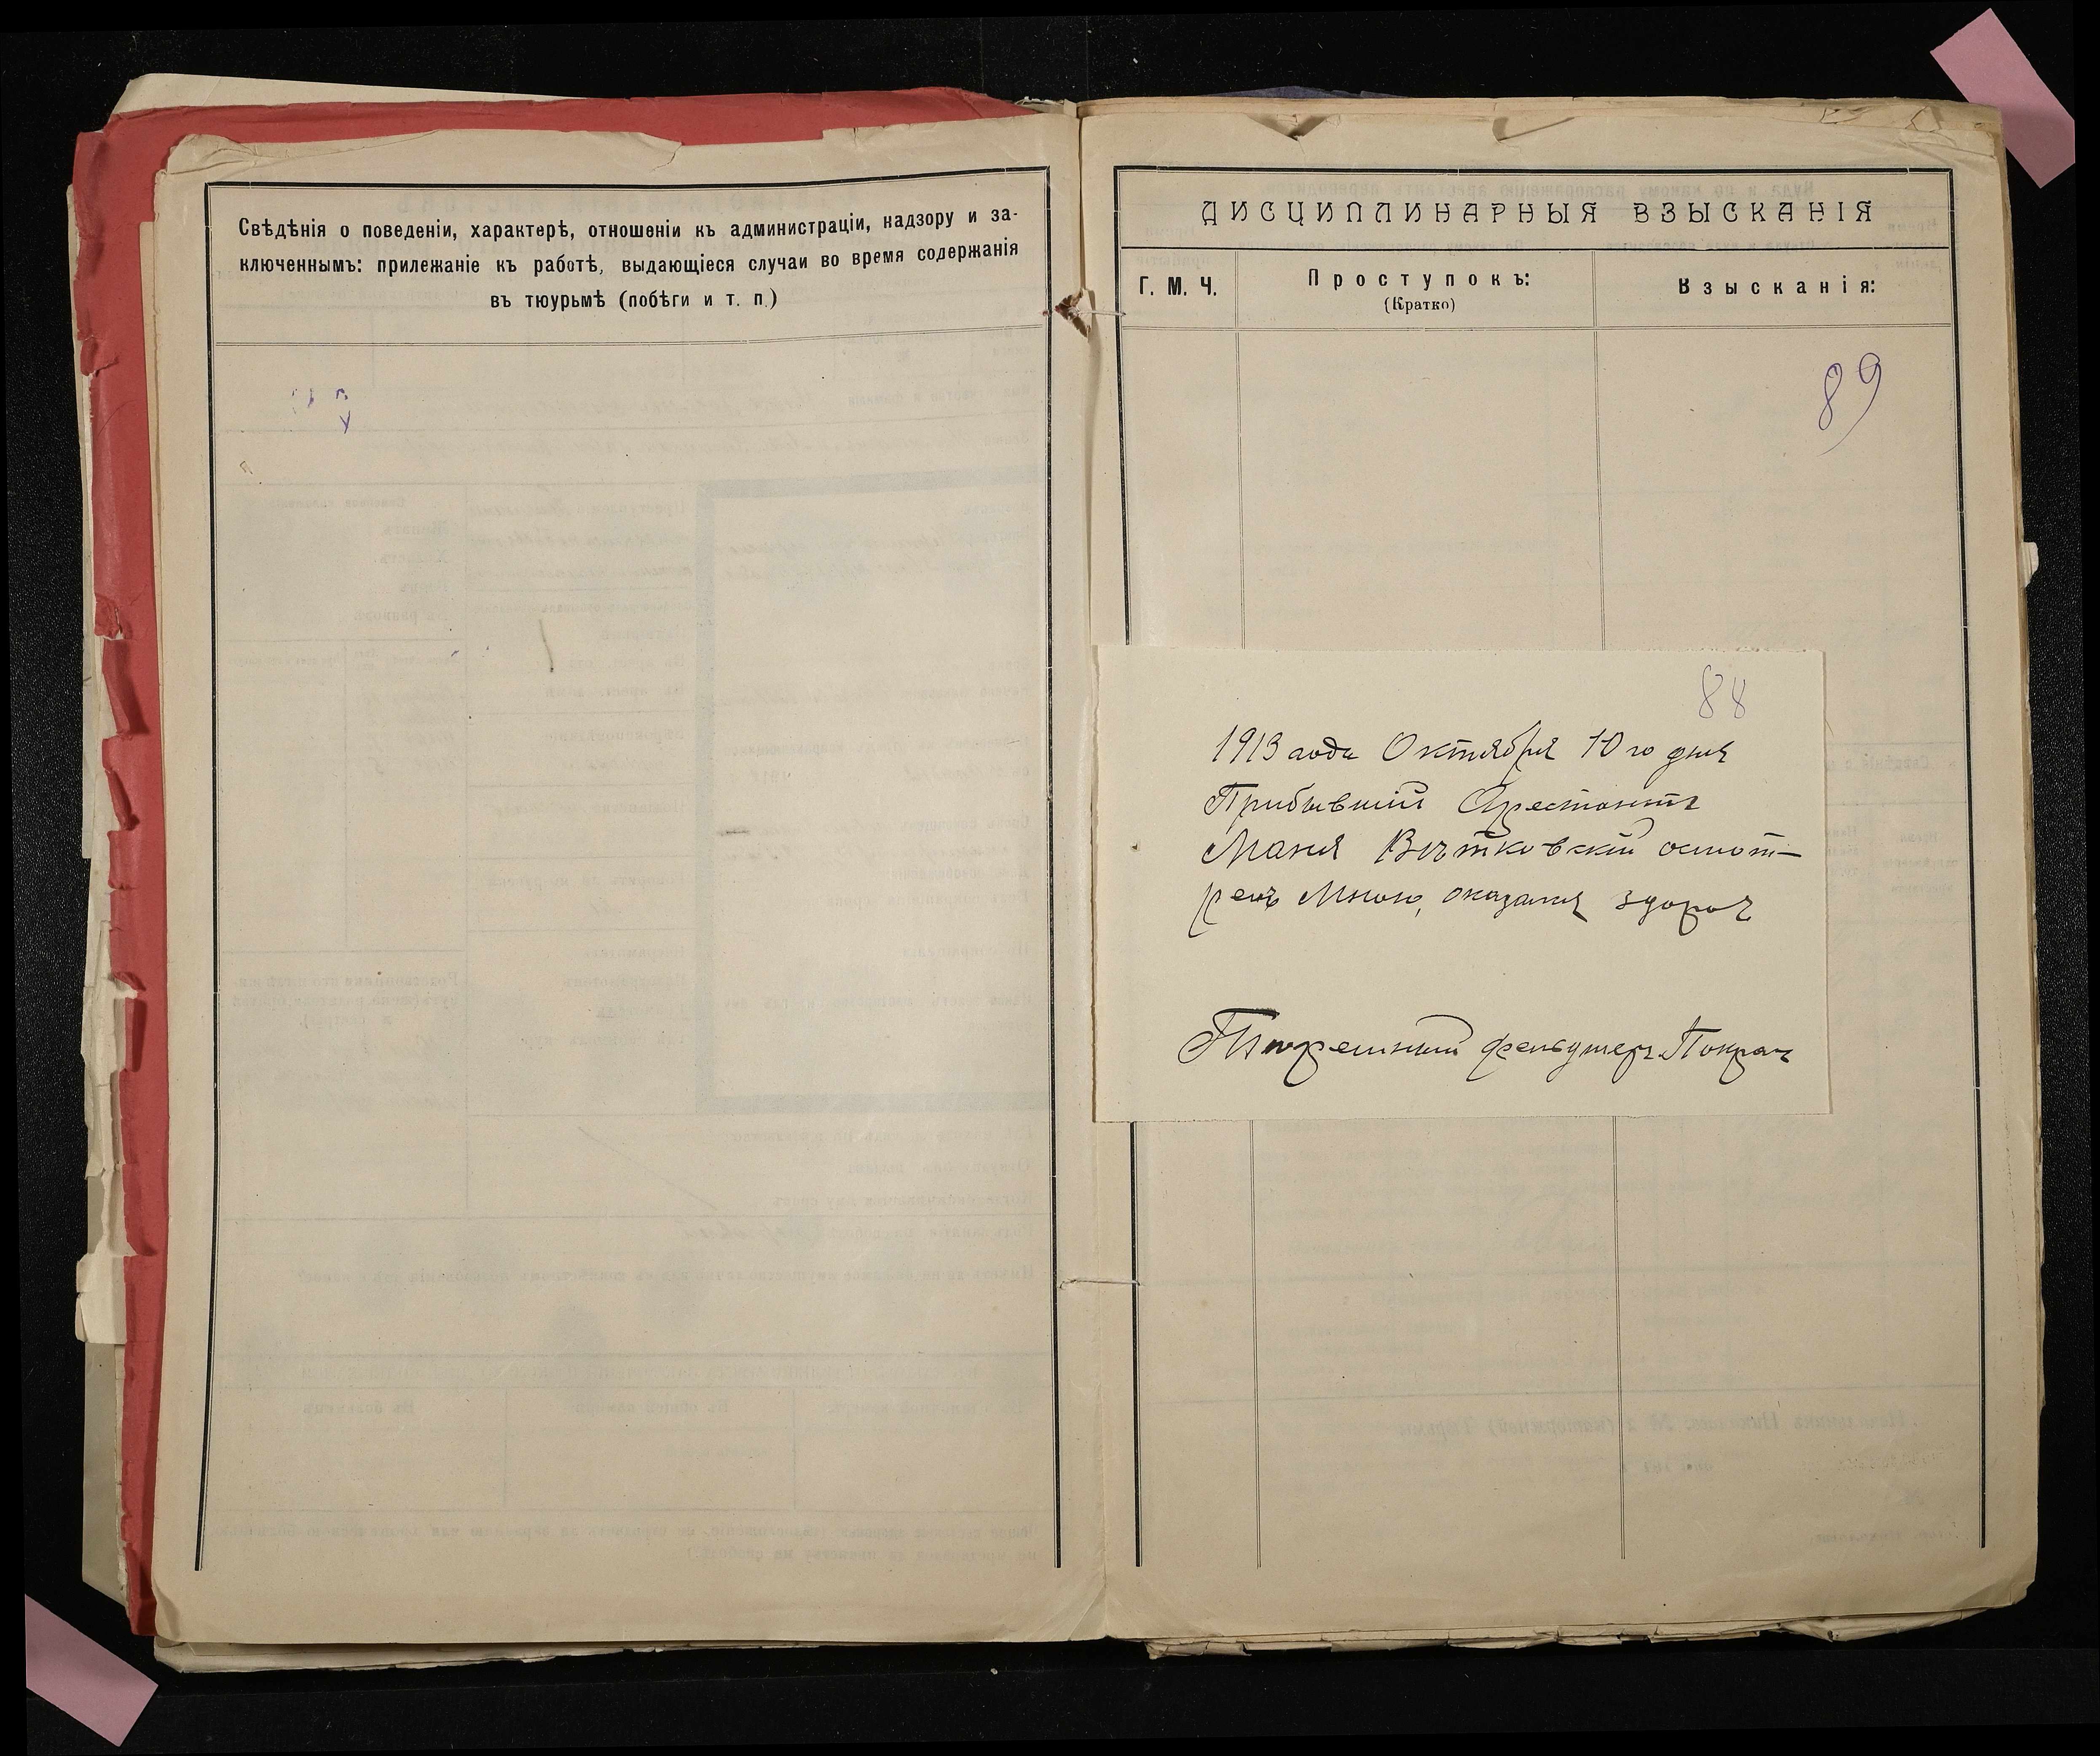 Свѣдѣнія о поведеніи, характерѣ, отношеніи къ администраціи, надзору и за-
ключеннымъ: прилежаніе къ работѣ, выдающіеся случаи во время содержанія
въ тюурьмѣ (побѣги и т. п.)
ДИСЦИПЛИНАРНЫЯ ВЗЫСКАНІЯ
Г. М. Ч.
Проступокъ:
(Кратко)
Взысканія:
89
88
1913 года Октября 10 го дня
Прибывший Арестантъ
Вѣтковский осмот-
ренъ Мною, оказался здоров
Тюремный фельдшеръ